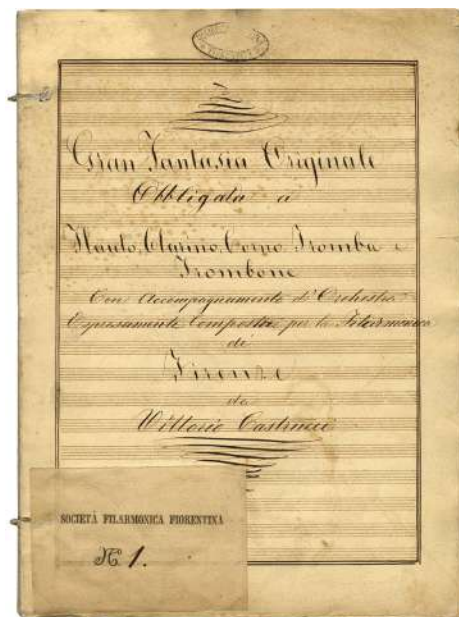 Gran Fantasia Originale
Obbligata a
Flauto, Clarino, Corno, Tromba e
Trombone
Con Accompagnamento d'Orchestra
Espresamente Composta per la Filarmonica
di
Firenze
da
Vittorio Castrucci
SOCIETÀ FILARMONICA FIORENTINA
No 1.